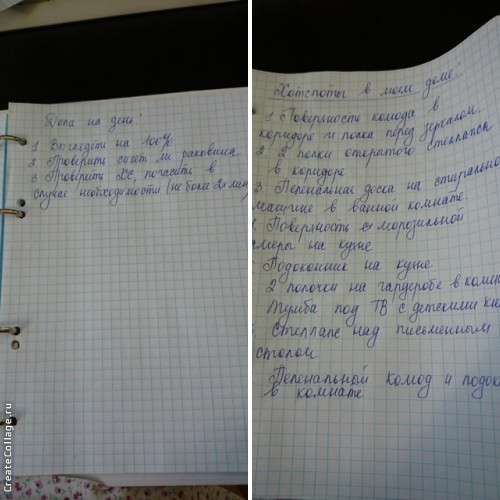 Дела на день!
1. Выглядеть на 100%
2. Проверить сияет ли раковина
3. Проверить ХС, почистить в
случае необходимости (не более 2х мин)
Хотспоты в моем доме!
1. Поверхность комода в
коридоре и полка перед зеркалом.
2. 2 полки открытого стеллажа
в коридоре
3. Пеленальная доска на стирально
машине в ванной комнате.
Поверхность морозильной
меры на кухне
Подоконник на кухне
2 полочки на гардеробе в комн
Тумба под ТВ с детскими кн
Стеллаж над письменным
столом
Пеленальный комод и подок
в комнате
CreateCollage.ru